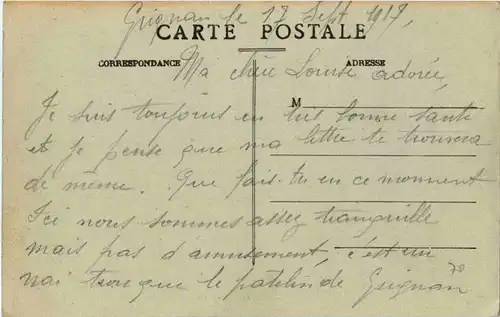 Grignan le 17 Sept 1917,
CARTE POSTALE
CORRESPONDANCE
ADRESSE
Ma chère Louise adorée,
M
Je suis toujours en très bonne santé
et je pense que ma lettre te trouvera
de même. Que fais-tu en ce moment
Ici nous sommes assez tranquille
mais pas d'amusement, c'est un
vrai trou que le patelin de Grignan
70